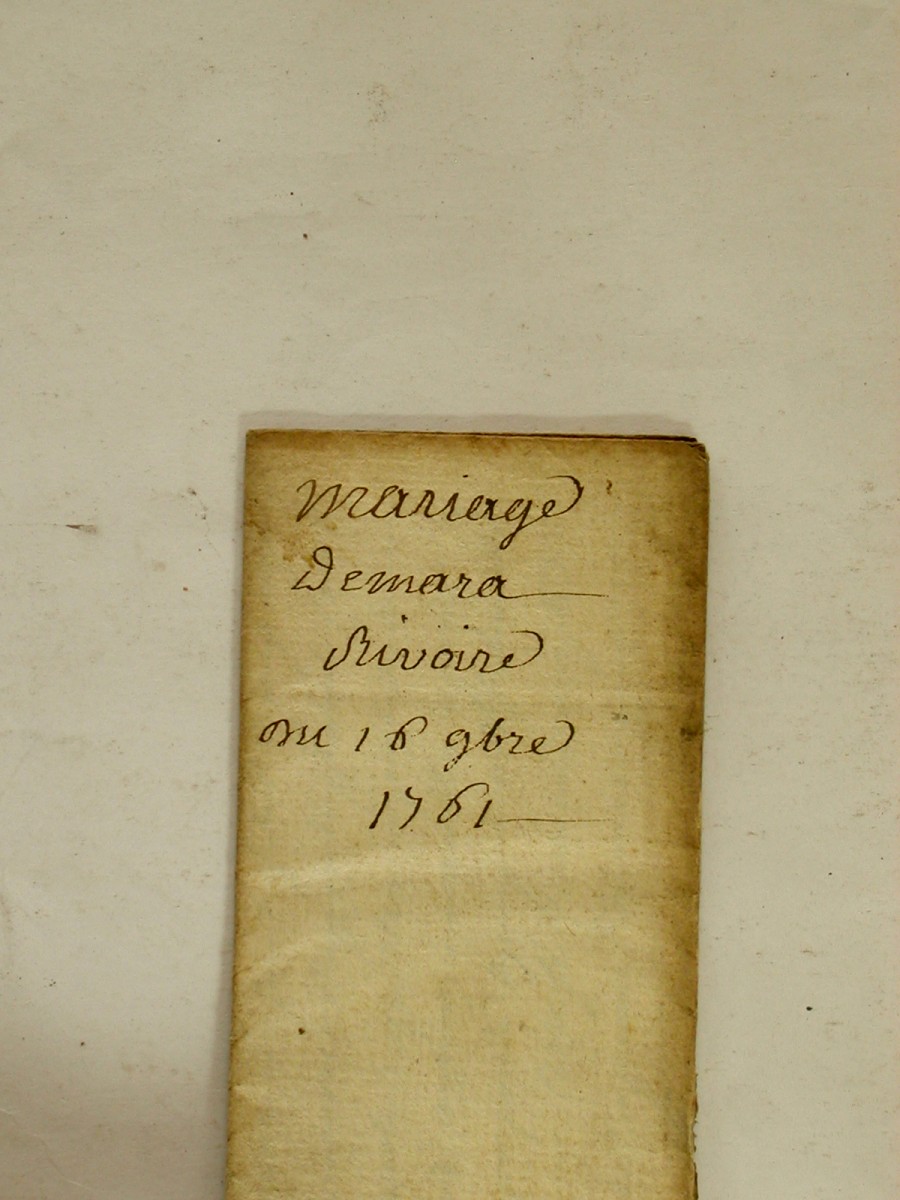 mariage
Demara
Rivoire
Du 16 9bre
1761